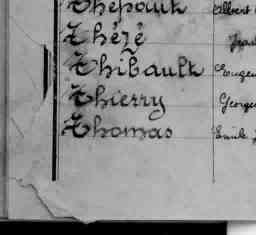 Thépault Albert
Thézé
Thibault Eugène
Thierry Georges
Thomas Emile